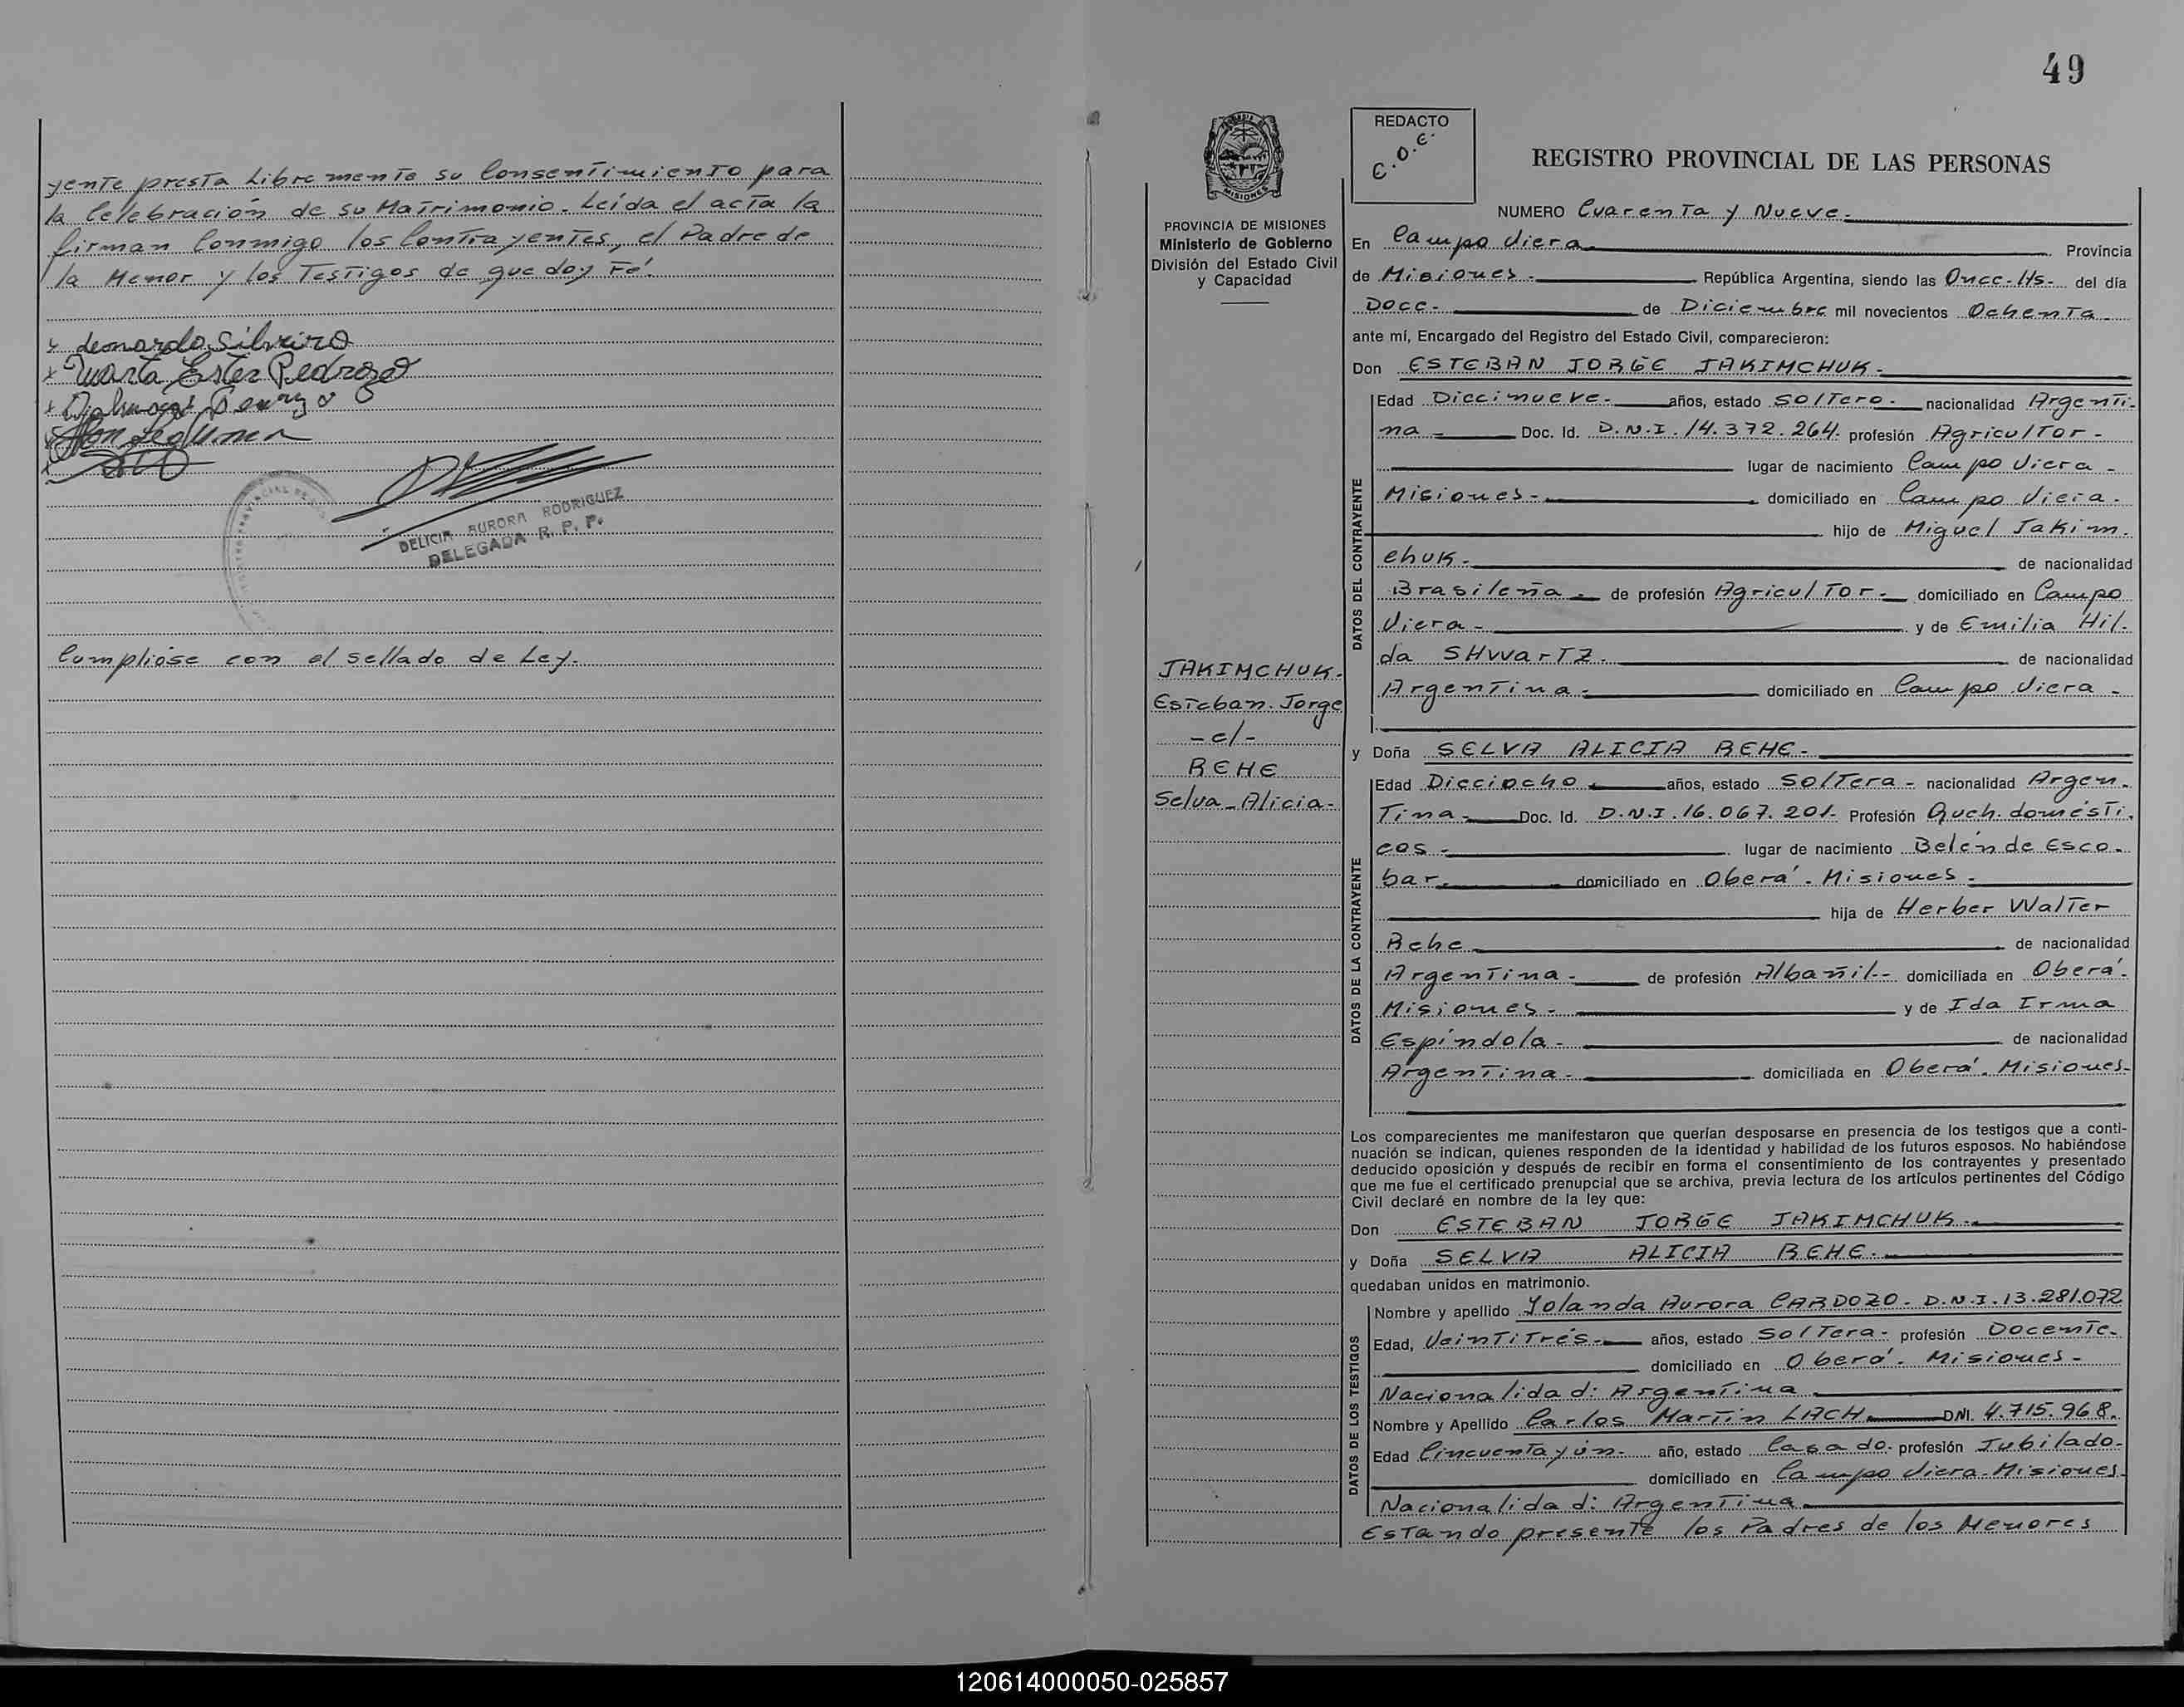 yente presta Libremente su Consentimiento para
la Celebración de su Matrimonio. Leída el acta la
firman Conmigo los Contrayentes, el Padre de
la Menor y los Testigos de que doy Fé.
Leonardo Silveiro
Marta Ester Pedrozo
DELICIA AURORA RODRIGUEZ
DELEGADA R. P. P.
Cumplióse con el sellado de Ley.
49
PROVINCIA DE MISIONES
Ministerio de Gobierno
División del Estado Civil
y Capacidad
JAKIMCHUK.
Esteban Jorge
- c/ -
REHE
Selva - Alicia -
REDACTO
C.O.E.
REGISTRO PROVINCIAL DE LAS PERSONAS
NUMERO Cuarenta y Nueve.
En Campo Viera. Provincia
de Misiones. República Argentina, siendo las Once-Hs- del día
Doce- de Diciembre mil novecientos Ochenta-
ante mí, Encargado del Registro del Estado Civil, comparecieron:
Don ESTEBAN JORGE JAKIMCHUK.
DATOS DEL CONTRAYENTE
Edad Diecinueve. años, estado Soltero. nacionalidad Argenti-
na - Doc. Id. D.N.I. 14.372.264. profesión Agricultor-
lugar de nacimiento Campo Viera -
Misiones- domiciliado en Campo Viera.
hijo de Miguel Jakim-
chuk. de nacionalidad
Brasileña. de profesión Agricultor. domiciliado en Campo
Viera- y de Emilia Hil-
da SHWartZ. de nacionalidad
Argentina. domiciliado en Campo Viera -
y Doña SELVA ALICIA REHE.
DATOS DE LA CONTRAYENTE
Edad Dieciocho años, estado Soltera - nacionalidad Argen-
Tina. Doc. Id. D.N.I. 16.067.201. Profesión Queh. domésti-
cos - lugar de nacimiento Belén de Esco-
bar. domiciliado en Oberá - Misiones.
hija de Herber Walter
Rehe de nacionalidad
Argentina. de profesión Albañil- domiciliada en Oberá-
Misiones. y de Ida Irma
Espíndola. de nacionalidad
Argentina. domiciliada en Oberá. Misiones-
Los comparecientes me manifestaron que querían desposarse en presencia de los testigos que a conti-
nuación se indican, quienes responden de la identidad y habilidad de los futuros esposos. No habiéndose
deducido oposición y después de recibir en forma el consentimiento de los contrayentes y presentado
que me fue el certificado prenupcial que se archiva, previa lectura de los artículos pertinentes del Código
Civil declaré en nombre de la ley que:
Don ESTEBAN JORGE JAKIMCHUK.
y Doña SELVA ALICIA REHE.
quedaban unidos en matrimonio.
DATOS DE LOS TESTIGOS
Nombre y apellido Yolanda Aurora CARDOZO - D.N.I. 13.281.072
Edad, Veintitrés. años, estado Soltera. profesión Docente.
domiciliado en Oberá. Misiones -
Nacionalidad: Argentina
Nombre y Apellido Carlos Martín LACH. DNI. 4.715.968.
Edad Cincuenta y ún. año, estado Casado. profesión Jubilado.
domiciliado en Campo Viera-Misiones
Nacionalidad: Argentina.
Estando presente los Padres de los Menores
120614000050-025857